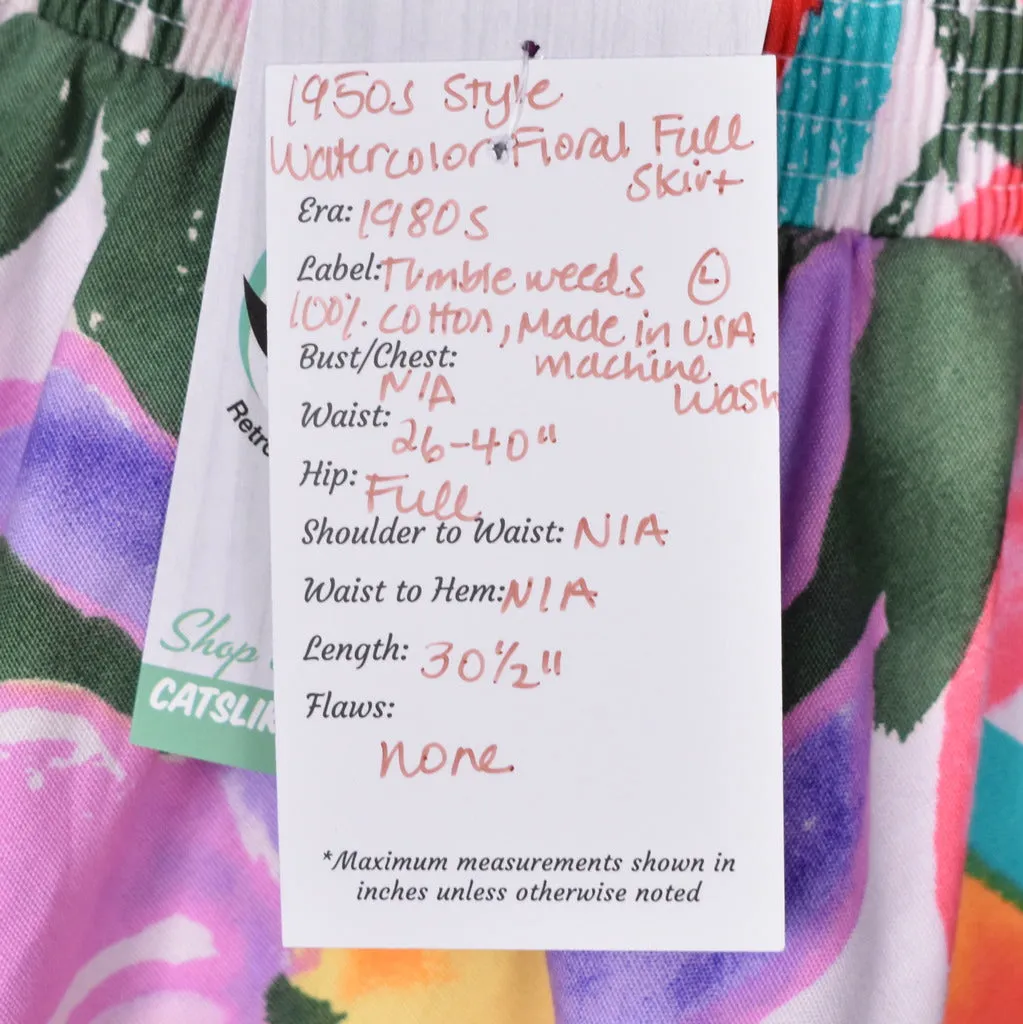 1950s Style
Watercolor Floral Full
Skirt
Era: 1980s
Label: Tumbleweeds Ⓛ
100% cotton, Made in USA
Bust/Chest: machine
N/A wash
Waist:
26-40"
Hip:
Full
Shoulder to Waist: N/A
Waist to Hem: N/A
Length: 30 1/2"
Flaws:
none
*Maximum measurements shown in
inches unless otherwise noted
Retro
Shop
CATSLIK